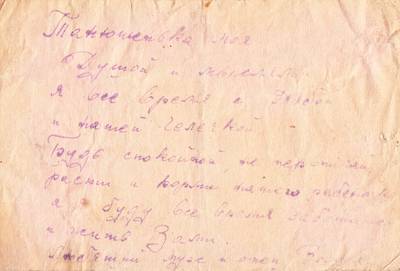 Танюшенька моя
Душой и мыслями
я все время с Тобой
и нашей Челечкой
Будь спокойной не нервничай
расти и корми нашего ребенка
а я буду все время заботиться
и жить Вами.
Любящий муж и отец